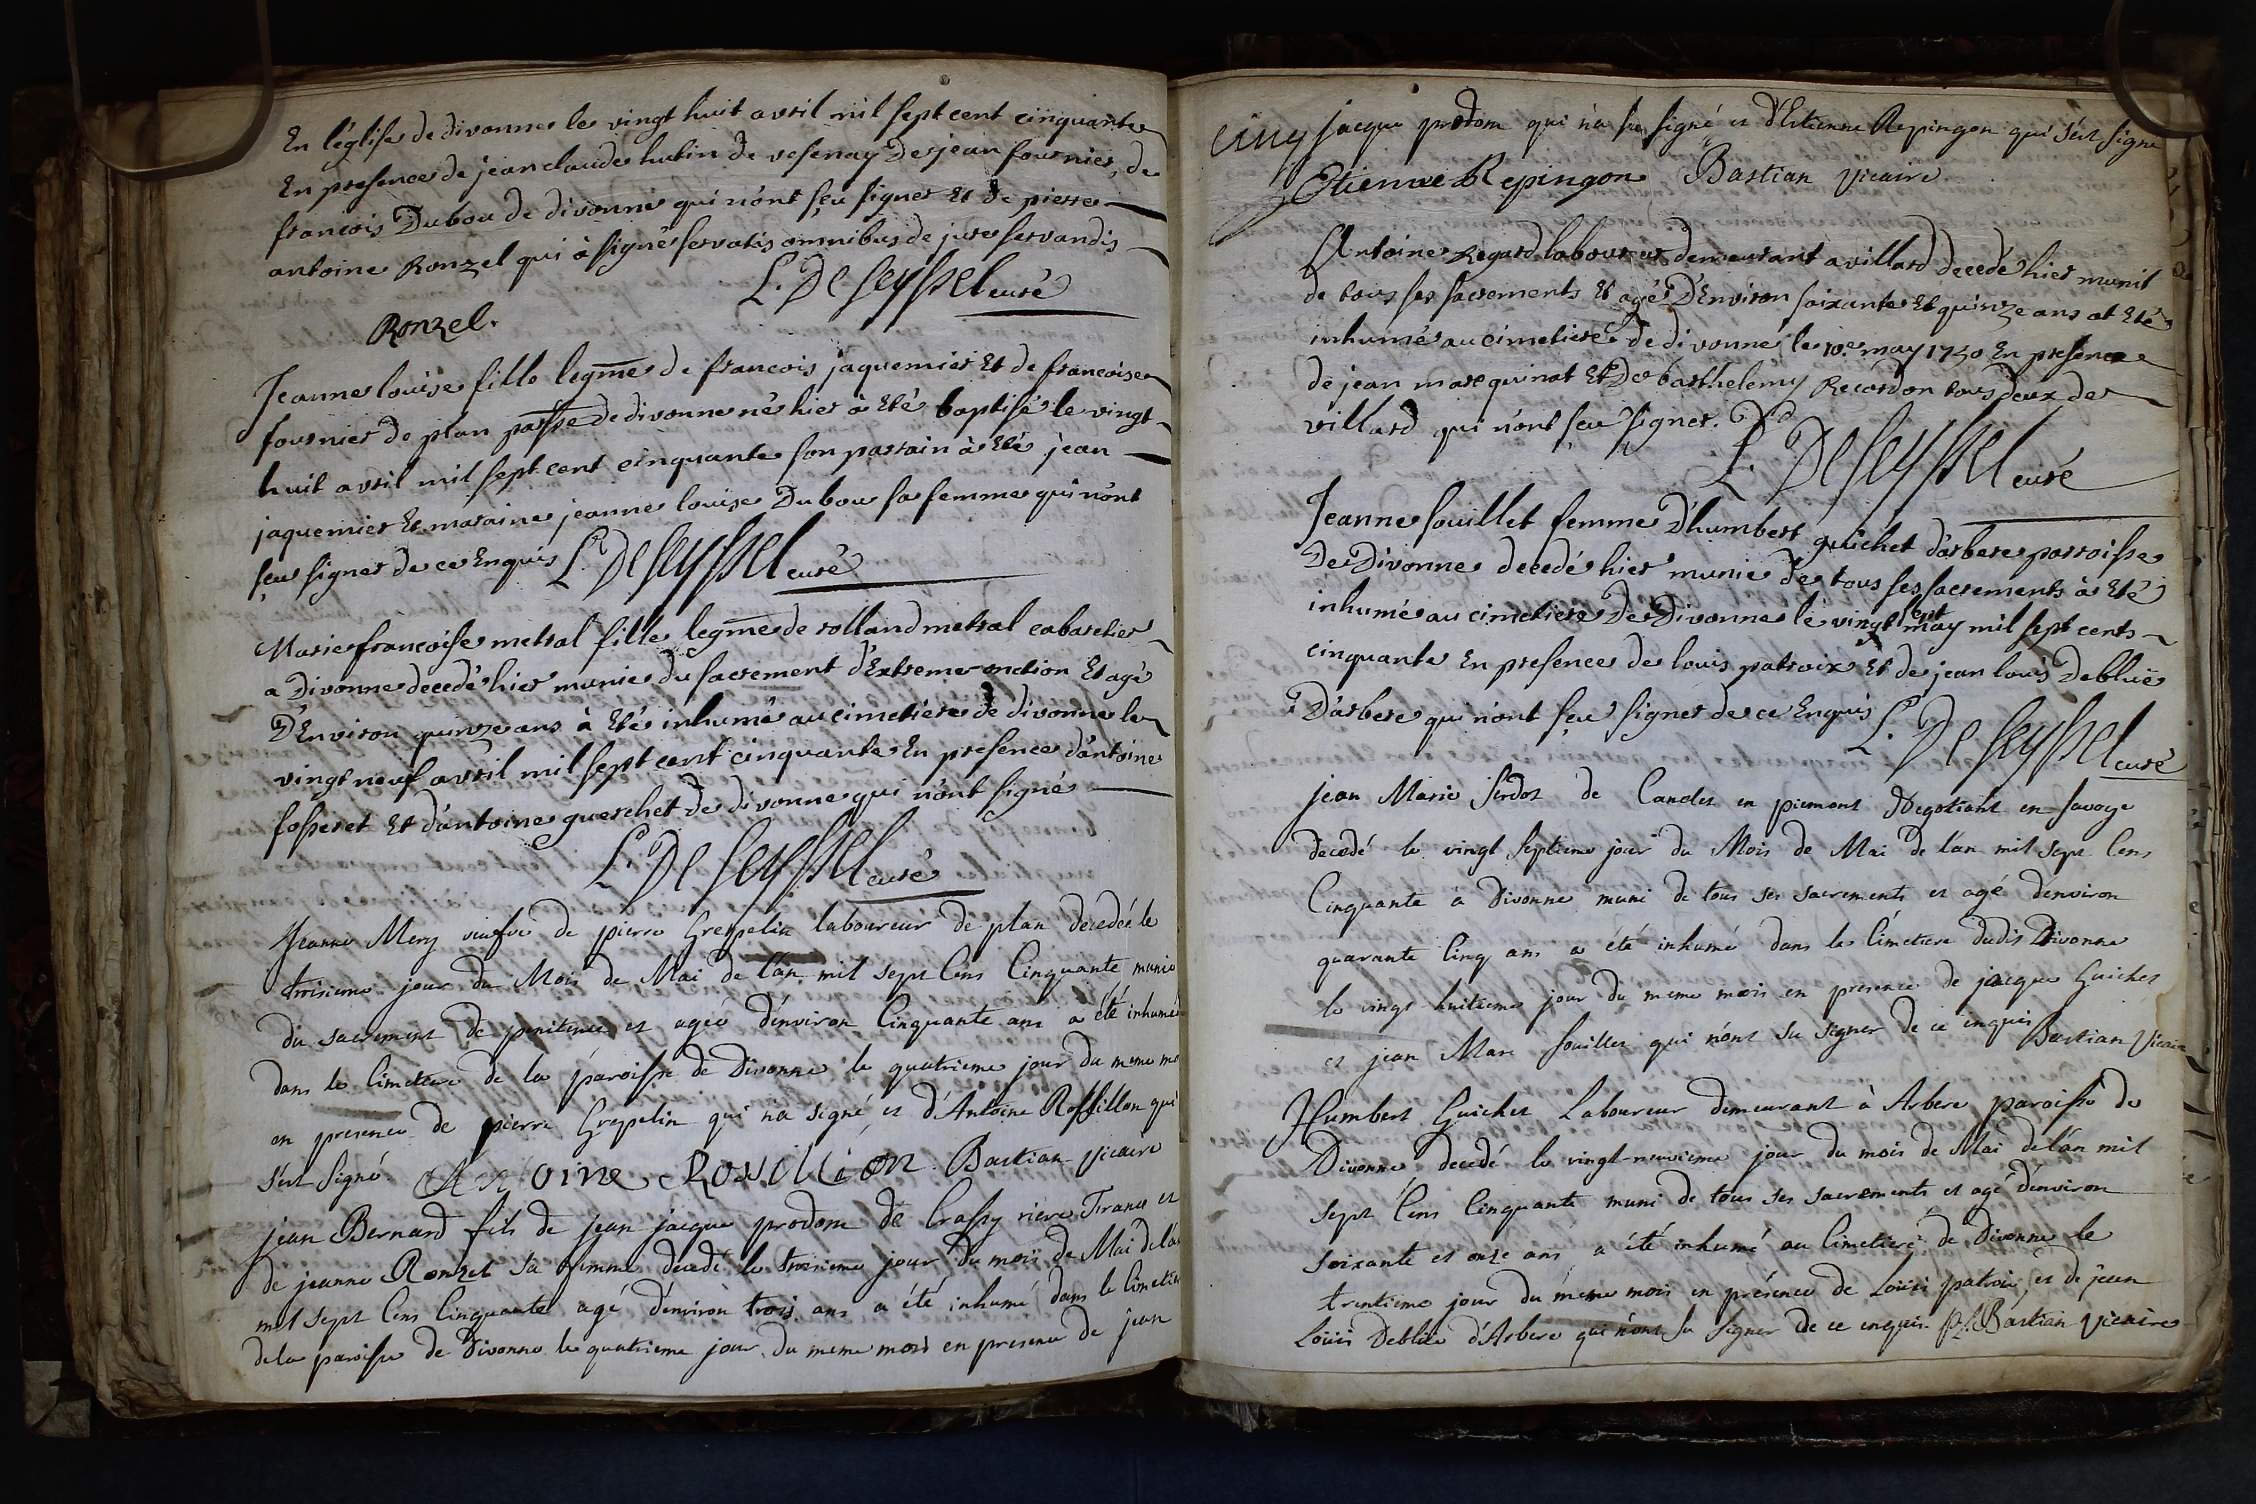 En l'église de divonne le vingt huit avril mil sept cent cinquante
En presence de jean claude hutin de vesenay De jean fournier, de
francois Dubou de divonne qui n'ont sçu signer Et de pierre
antoine Ronzel qui à signé servatis omnibus de jure servandis
L. De Seyssel curé
Ronzel.
Jeanne louise fille legme de francois jaquemier Et de francoise
fournier de plan passe de divonne né hier à Eté baptisé le vingt
huit avril mil sept cent cinquante son parrain à Eté jean
jaquemier Et maraine jeanne louise Dubou sa femme qui n'ont
sçu signer de ce Enquis L. De Seyssel curé
Marie francoise metral fille legme de rolland metral cabaretier
a Divonne decedé hier munie du sacrement d'Extreme-onction Et agé
D'Environ quinze ans à Eté inhumé au cimetiere de divonne le
vingt neuf avril mil sept cent cinquante En presence d'antoine
fosseret Et d'antoine guerchet de divonne qui n'ont signé
L. De Seyssel curé
Jeanne Mery veufve de pierre Grespelin laboureur de plan decedée le
troisieme jour du Mois de Mai de l'an mil sept Cens Cinquante munie
du sacrement de penitence et agée d'environ Cinquante ans a été inhumé
dans le Cimetiere de la paroisse de Divonne le quatrieme jour du meme mo
en presence de pierre Grepelin qui n'a signé et d'Antoine Rossillon qui
s'est signé Antoine Rosillion Bastian vicaire
jean Bernard fils de jean jacque prodom de Crassy riere France et
de jeanne Ronzel sa femme decedé le troisieme jour du mois de Mai de l'an
mil sept Cens Cinquante agé d'environ trois ans a été inhumé dans le Cimetie
de la paroisse de Divonne le quatrieme jour du meme mois en presence de jean
cinq jacque prodom qui n'a su signé et d'Etienne Repingon qui s'est signé
Etienne Repingon Bastian vicaire
Antoine Regard laboureur demeurant a villard decedé hier munit
de tous ses sacrements Et agé D'Environ soixante Et quinze ans at Eté
inhumé au cimetiere de divonne le 10e may 1750 En presence
de jean marc quinat Et De barthelemy Recordon tous deux de
villard qui n'ont sçu signer.
L. De Seyssel curé
Jeanne souillet femme D'humbert guichet d'arbere parroisse
De Divonne decedé hier munie de tous ses sacrements à Eté
inhumé au cimetiere De Divonne le vingt may mil sept cents
cinquante En presence de louis patroix Et de jean louis Deblüe
D'arbere qui n'ont sçu signer de ce Enquis L. De Seyssel curé
jean Marie de Candet en piemont Negotiant en savoye
decedé le vingt septieme jour du Mois de Mai de l'an mil sept Cens
Cinquante à Divonne muni de tous ses sacrements et agé d'environ
quarante Cinq ans a été inhumé dans le Cimetiere dudit Divonne
le vingt huitieme jour du meme mois en presence de jacque Guichet
et jean Marc souillet qui n'ont su signer de ce enquis Bastian Vicaire
Humbert Guichet Laboureur demeurant à Arbere paroisse de
Divonne decedé le vingt-neuvieme jour du mois de Mai de l'an mil
sept Cens Cinquante muni de tous ses sacrements et agé d'environ
soixante et onze ans a été inhumé au Cimetiere de Divonne le
trentieme jour du même mois en présence de Loüis patroix et de jean
Loüis Deblüe d'Arbere qui n'ont su signer de ce enquis Bastian vicaire